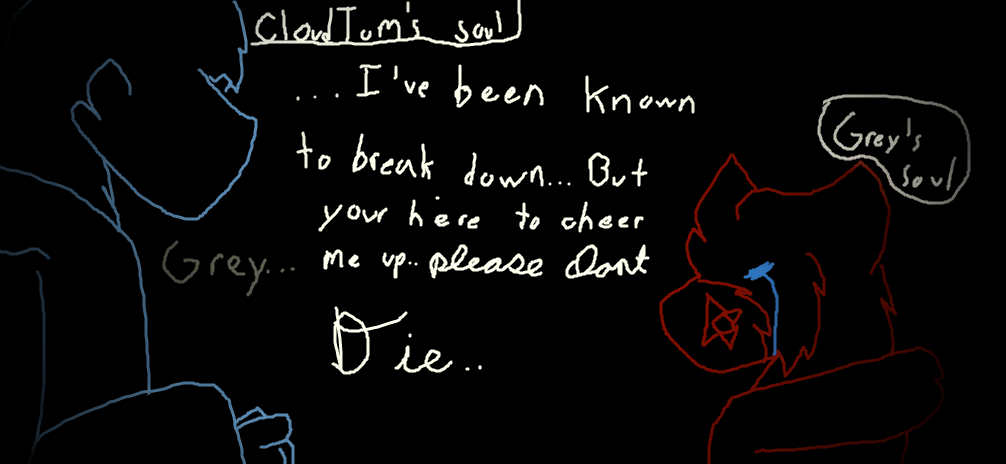 CloudTom's soul
... I've been known
to break down... But
your here to cheer
me up.. please dont
Die..
Grey...
Grey's
soul